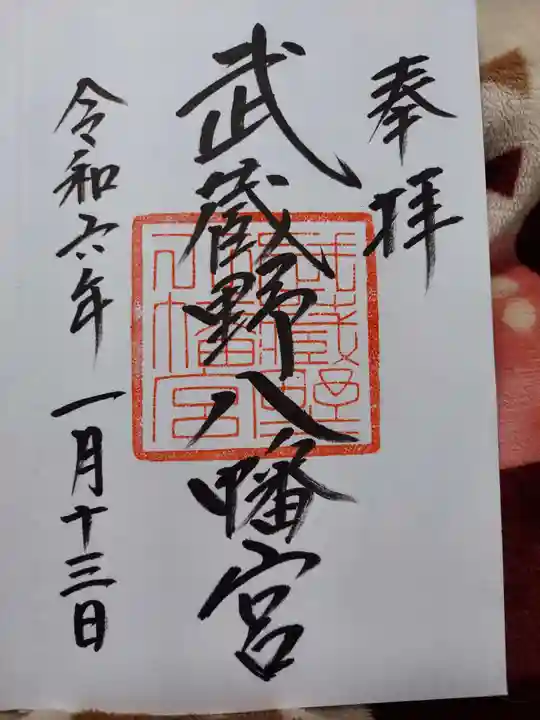 奉拝
武蔵野八幡宮
令和六年一月十三日
武蔵野八幡宮